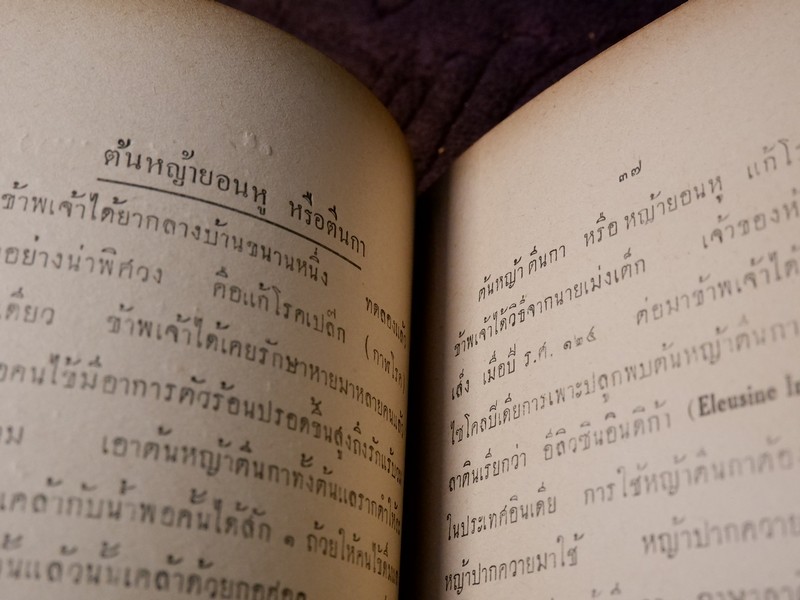 ต้นหญ้ายอนหู หรือตีนกา
ข้าพเจ้าได้ยากลางบ้านขนานหนึ่ง ทดลองแล้ว
อย่างน่าพิศวง คือแก้โรคเปลก (กาฬโรค)
เดียว ข้าพเจ้าได้เคยรักษาหายมาหลายคนแล้ว
คนไข้มีอาการตัวร้อนปรอดขึ้นสูงถึง
เอาต้นหญ้าตีนกาทั้งต้นแลรากตำให้
เคล้ากับน้ำพอคั้นได้สัก ๑ ถ้วยให้คนไข้
แล้วนั้นเคล้าด้วย
๓๗
ต้นหญ้าตีนกา หรือ หญ้ายอนหู แก้โร
ข้าพเจ้าได้วิธีจากนายเม่งเต็ก เจ้าของห้
เส็ง เมื่อปี ร.ศ. ๑๒๔ ต่อมาข้าพเจ้าได้
ไซโคลบีเดียการเพาะปลูกพบต้นหญ้าตีนกา
ลาตินเรียกว่า อีลิวซีนอินดิก้า (Eleusine In
ในประเทศอินเดีย การใช้หญ้าตีนกาต้อง
หญ้าปากควายมาใช้ หญ้าปากควาย